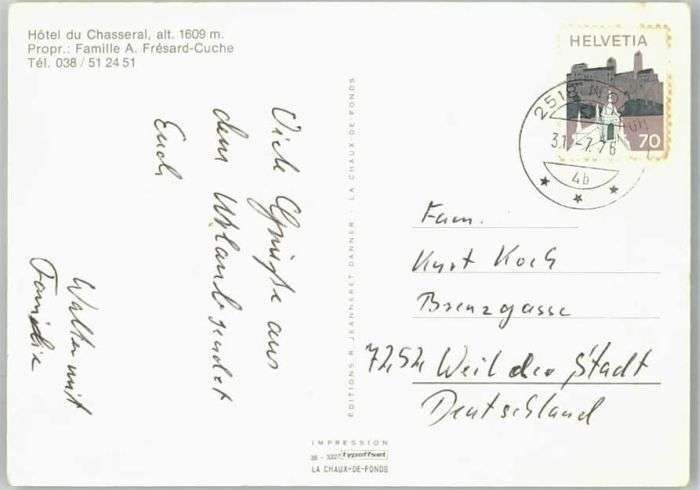 Hôtel du Chasseral, alt. 1609 m.
Propr.: Famille A. Frésard-Cuche
Tél. 038 / 51 24 51
Viele Grüße aus
dem Urlaub sendet
Euch
Walter mit
Familie
EDITIONS R. JEANNERET DANNER - LA CHAUX-DE-FONDS
HELVETIA
70
2518
31.-7.76
4b
Fam.
Kurt Koch
Brenzgasse
7252 Weil der Stadt
Deutschland
IMPRESSION
typoffset
LA CHAUX-DE-FONDS